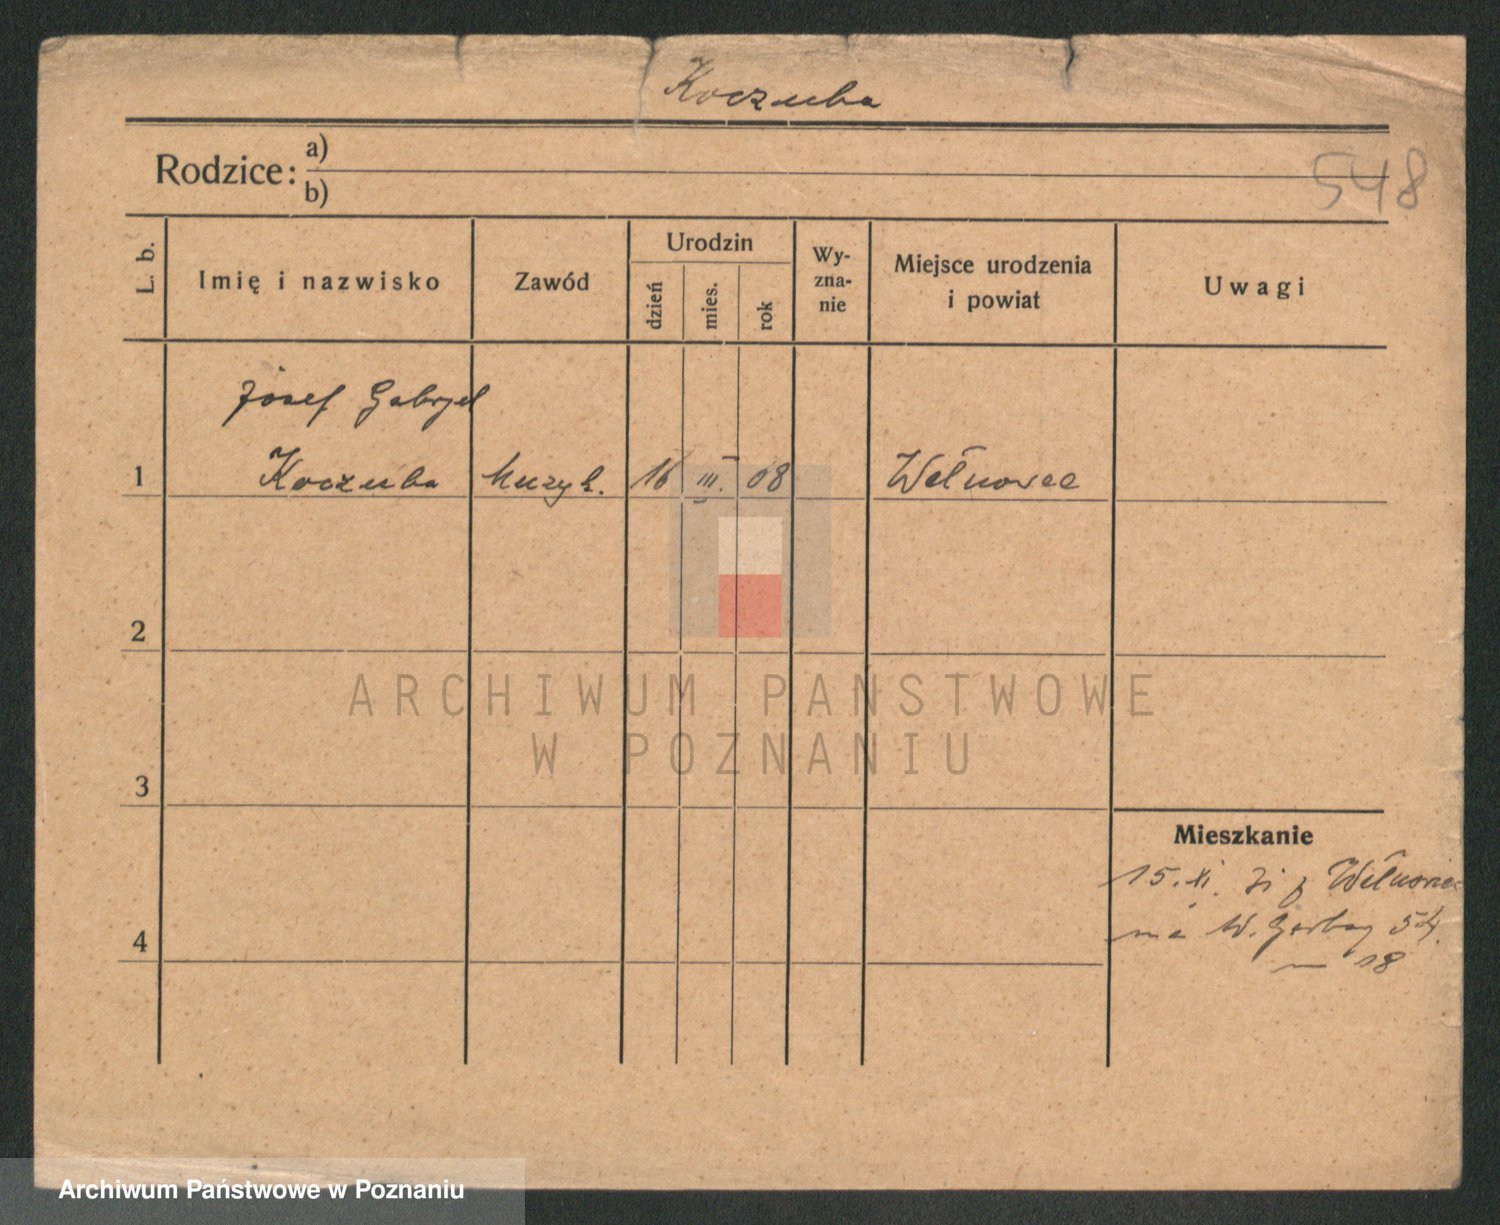 Koczuba
548
Rodzice: a)
b)
L. b.
Imię i nazwisko
Zawód
Urodzin
dzień
mies.
rok
Wy-
zna-
nie
Miejsce urodzenia
i powiat
Uwagi
Józef Gabryel
1 Koczuba Muzyk. 16 III. 08 Wełnowiec
2
ARCHIWUM PAŃSTWOWE
W POZNANIU
3
Mieszkanie
15. XI. 31 z Wełnowiec
na W. Garbary 54.
4
m 18
Archiwum Państwowe w Poznaniu